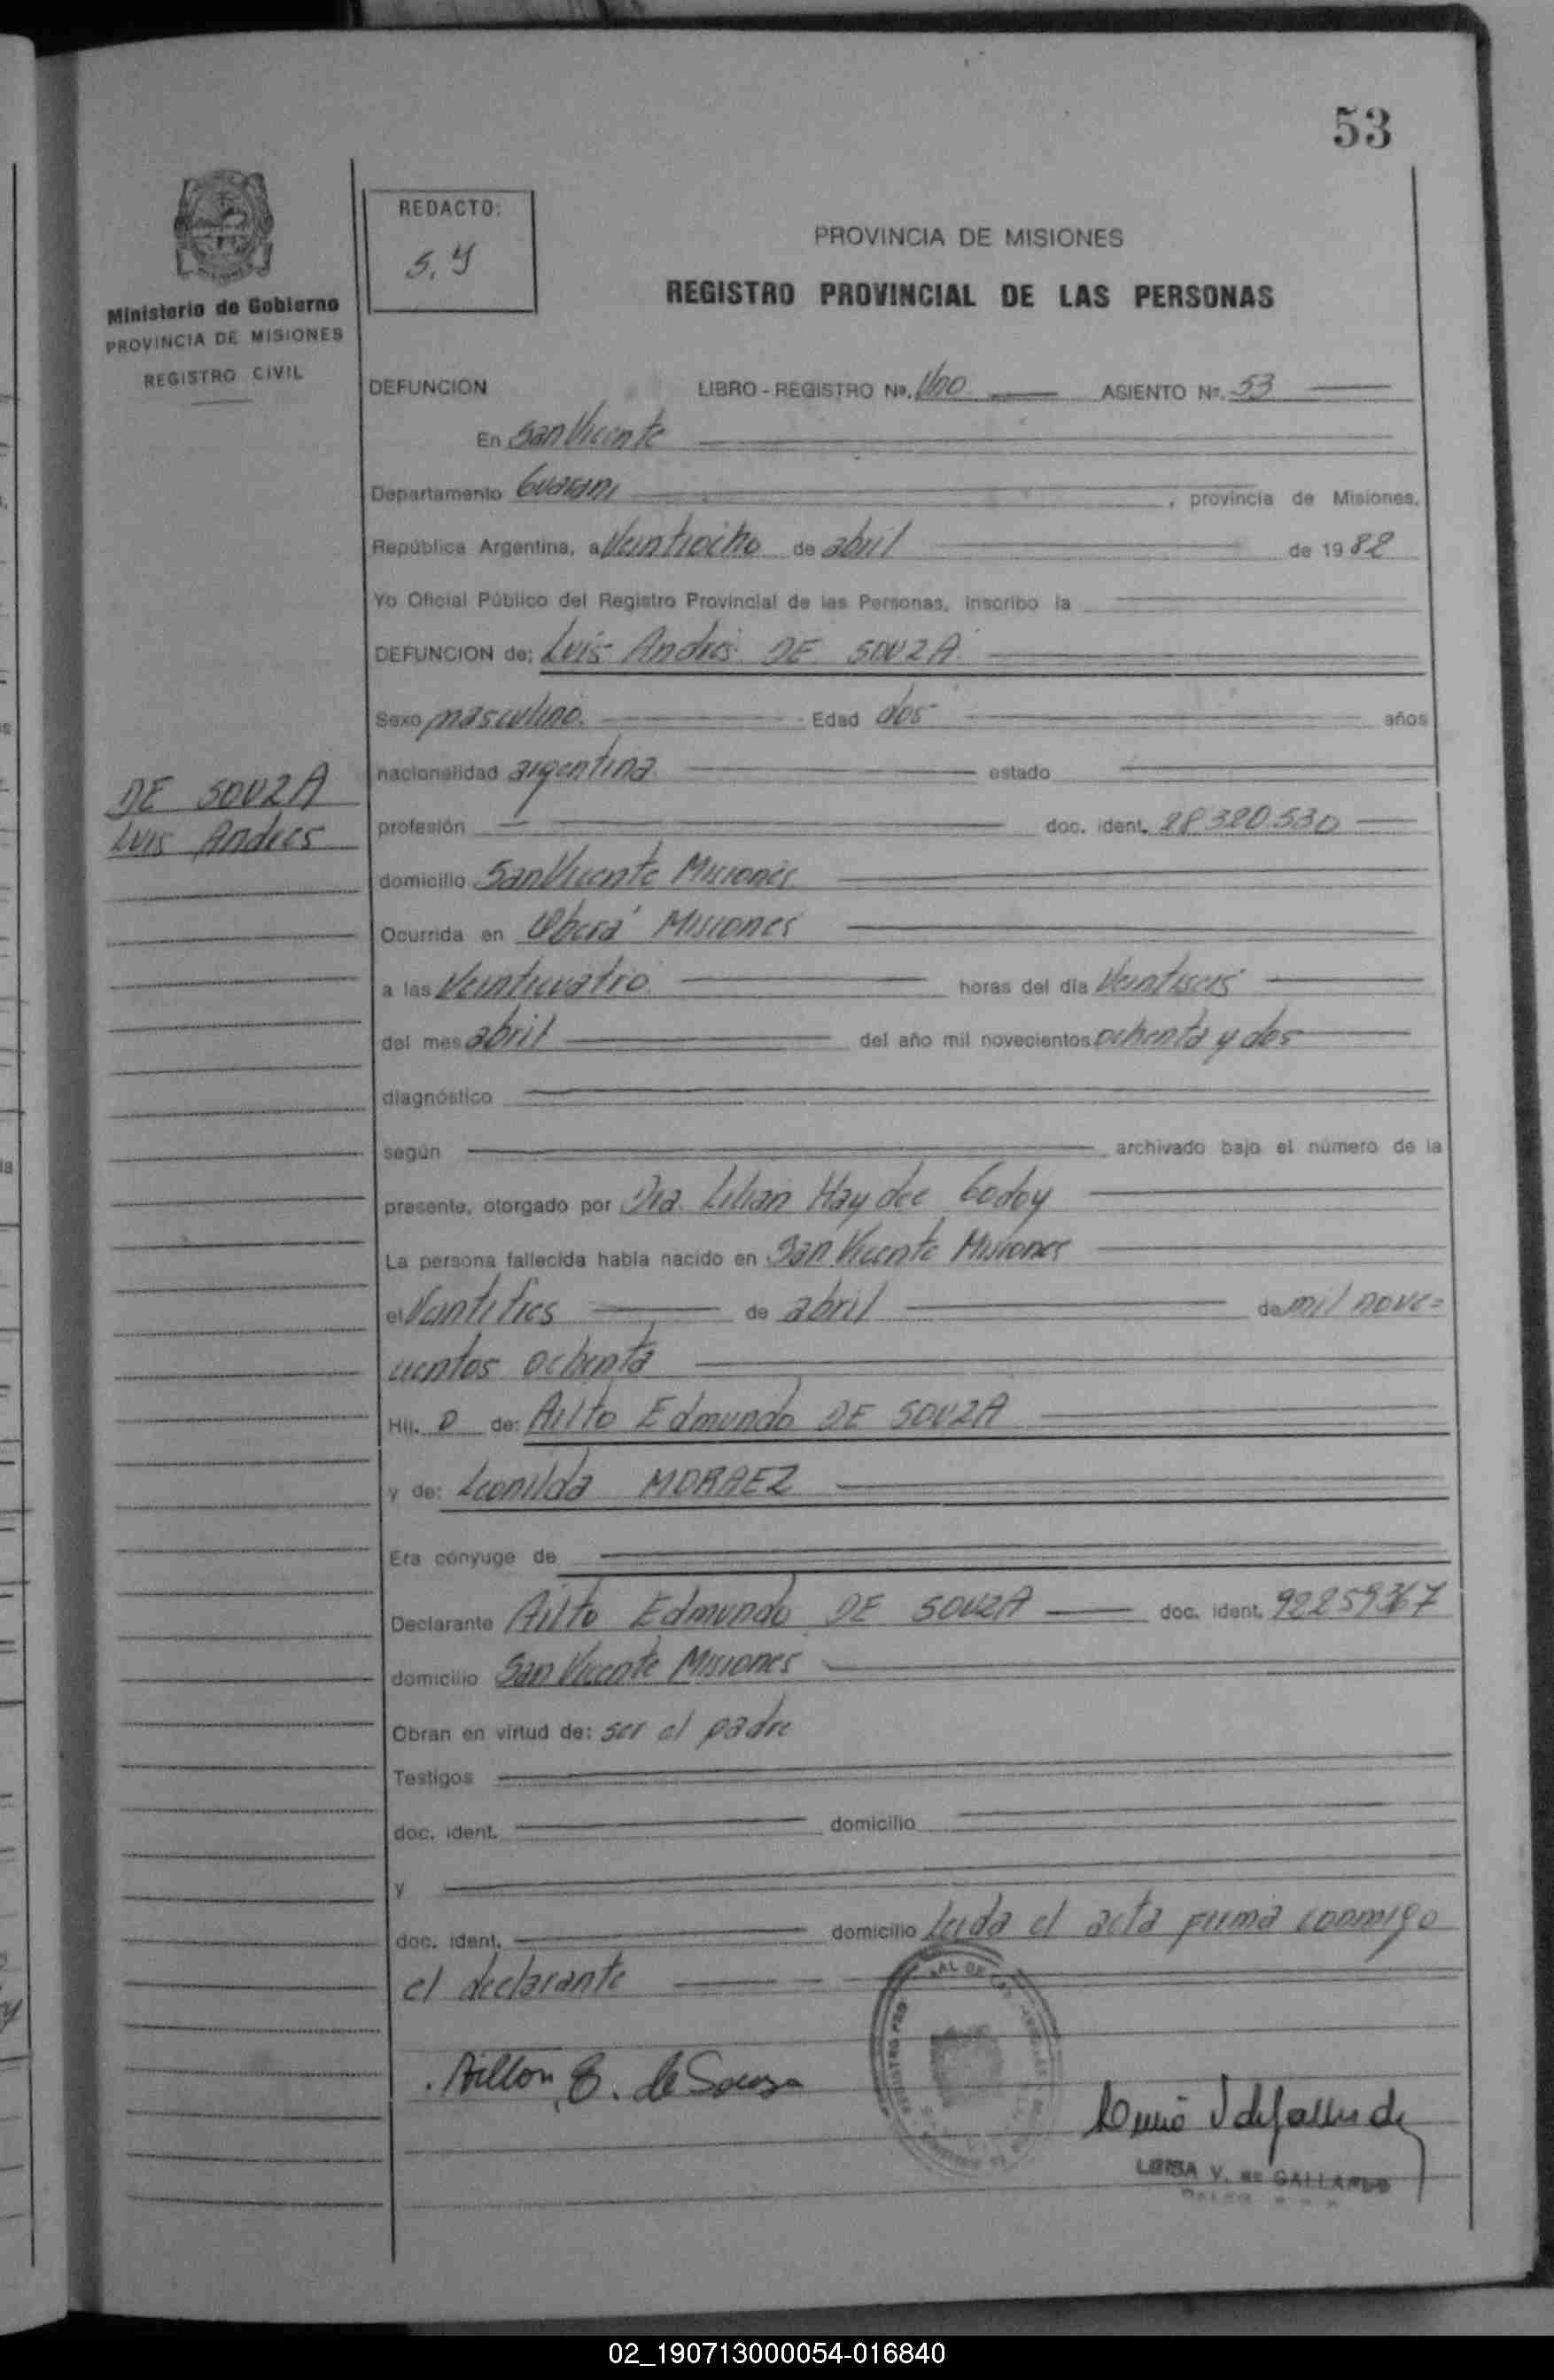 53
REDACTO:
S. Y
Ministerio de Gobierno
PROVINCIA DE MISIONES
REGISTRO CIVIL
PROVINCIA DE MISIONES
REGISTRO PROVINCIAL DE LAS PERSONAS
DEFUNCION LIBRO - REGISTRO Nº. Uno ASIENTO Nº. 53
En San Vicente
Departamento Guarani , provincia de Misiones,
República Argentina, a Veintiocho de abril de 19 82
Yo Oficial Público del Registro Provincial de las Personas, inscribo la
DEFUNCION de; Luis Andres DE SOUZA
Sexo masculino. Edad dos años
nacionalidad argentina estado
DE SOUZA
Luis Andres
profesión doc. ident. 28320.530
domicilio San Vicente Misiones
Ocurrida en Oberá Misiones
a las Veinticuatro horas del día Veintiseis
del mes abril del año mil novecientos ochenta y dos
diagnóstico
según archivado bajo el número de la
presente, otorgado por Dra. Lilian Haydee Godoy
La persona fallecida había nacido en San Vicente Misiones
el Veintitres de abril de mil nove=
cientos ochenta
Hij. o de: Ailto Edmundo DE SOUZA
y de: Leonilda MORAEZ
Era cónyuge de
Declarante Ailto Edmundo DE SOUZA doc. ident. 92259367
domicilio San Vicente Misiones
Obran en virtud de: ser el padre
Testigos
doc. ident. domicilio
y
doc. ident. domicilio Leida el acta firma conmigo
el declarante
Ailton E. de Souza
LUISA V. DE GALLARDO
02_190713000054-016840